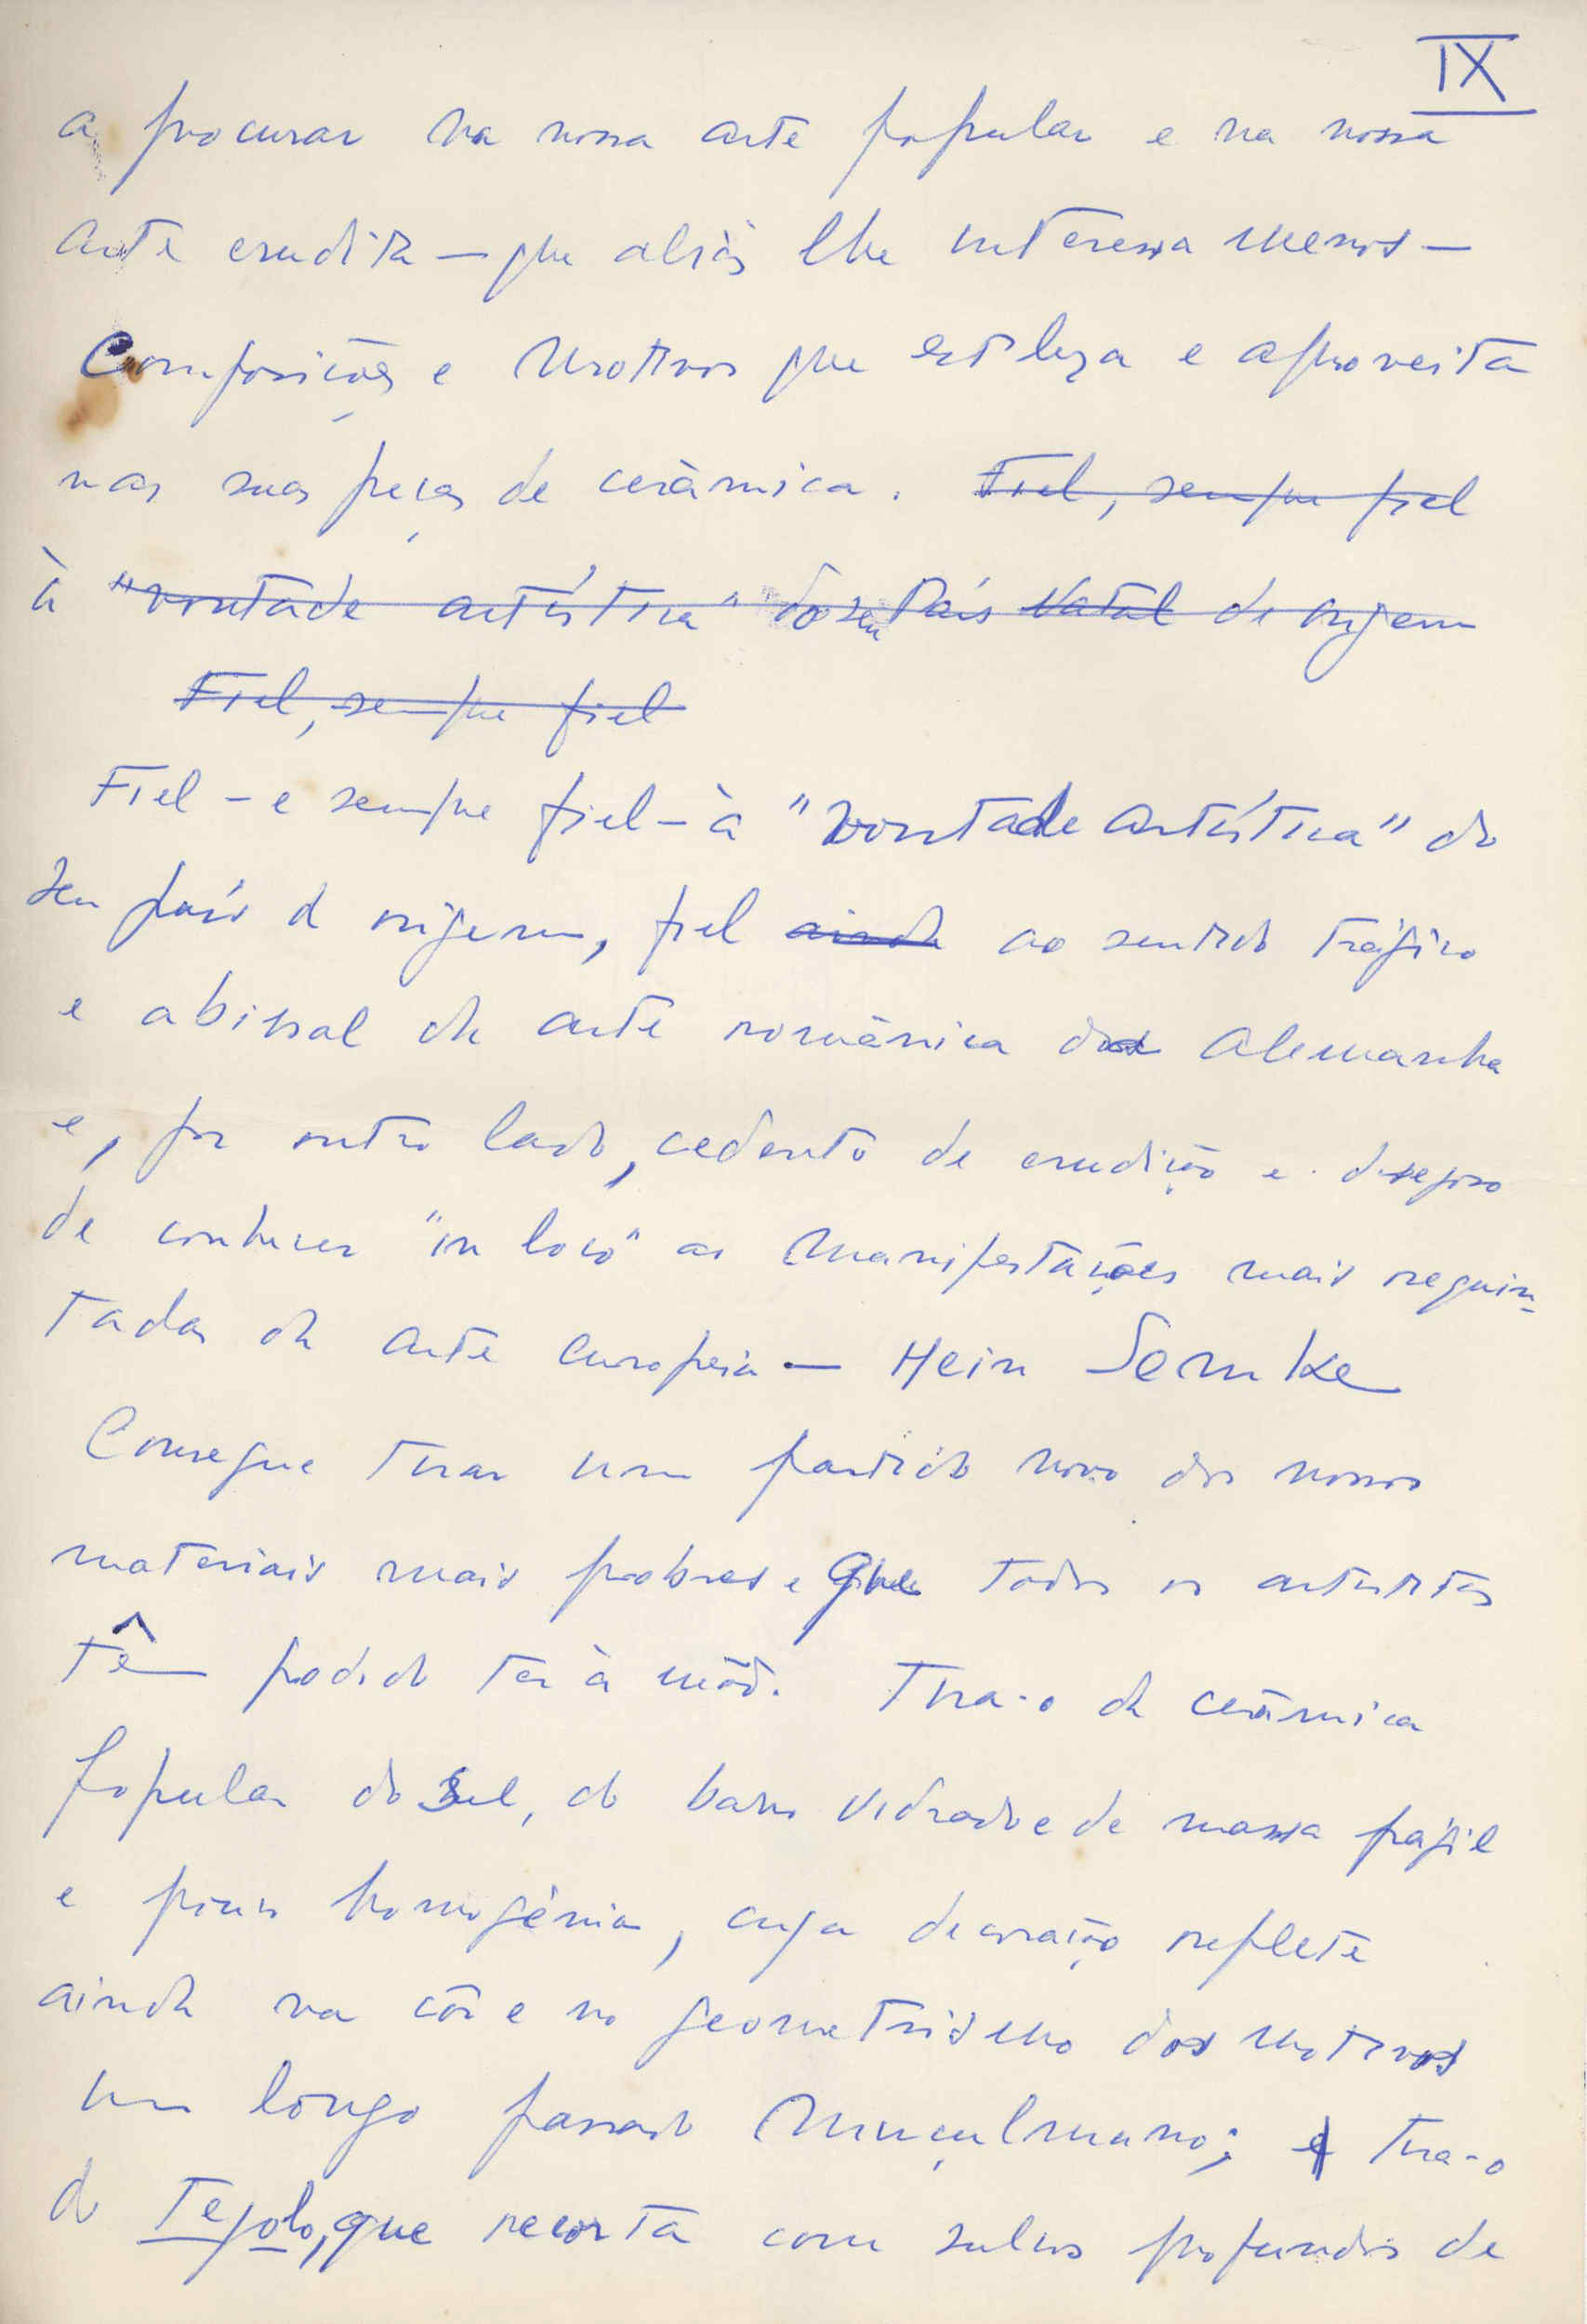 IX
a procurar na nossa arte popular e na nossa
arte erudita — que aliás lhe interessa menos —
Composições e Motivos que estiliza e aproveita
nas suas peças de cerâmica. Fiel, sempre fiel
à "vontade artística" do seu País Natal de origem
Fiel, sempre fiel
Fiel - e sempre fiel - à "vontade artística" do
seu país d origem, fiel ainda ao sentido trágico
e abissal da arte românica da Alemanha
e, por outro lado, sedento de erudição e desejoso
de conhecer "in loco" as Manifestações mais requin-
tadas da arte europeia — Hein Semke
Consegue tirar um partido novo dos nossos
materiais mais pobres e que todos os artistas
têm podido ter à mão. Tira-o da cerâmica
popular do Sul, do barro vidrado e de massa frágil
e pouco homogénia, cuja decoração reflete
ainda na côr e no geometrismo dos motivos
um longo passado Muçulmano; e tira-o
do Tejolo, que recorta com sulcos profundos de